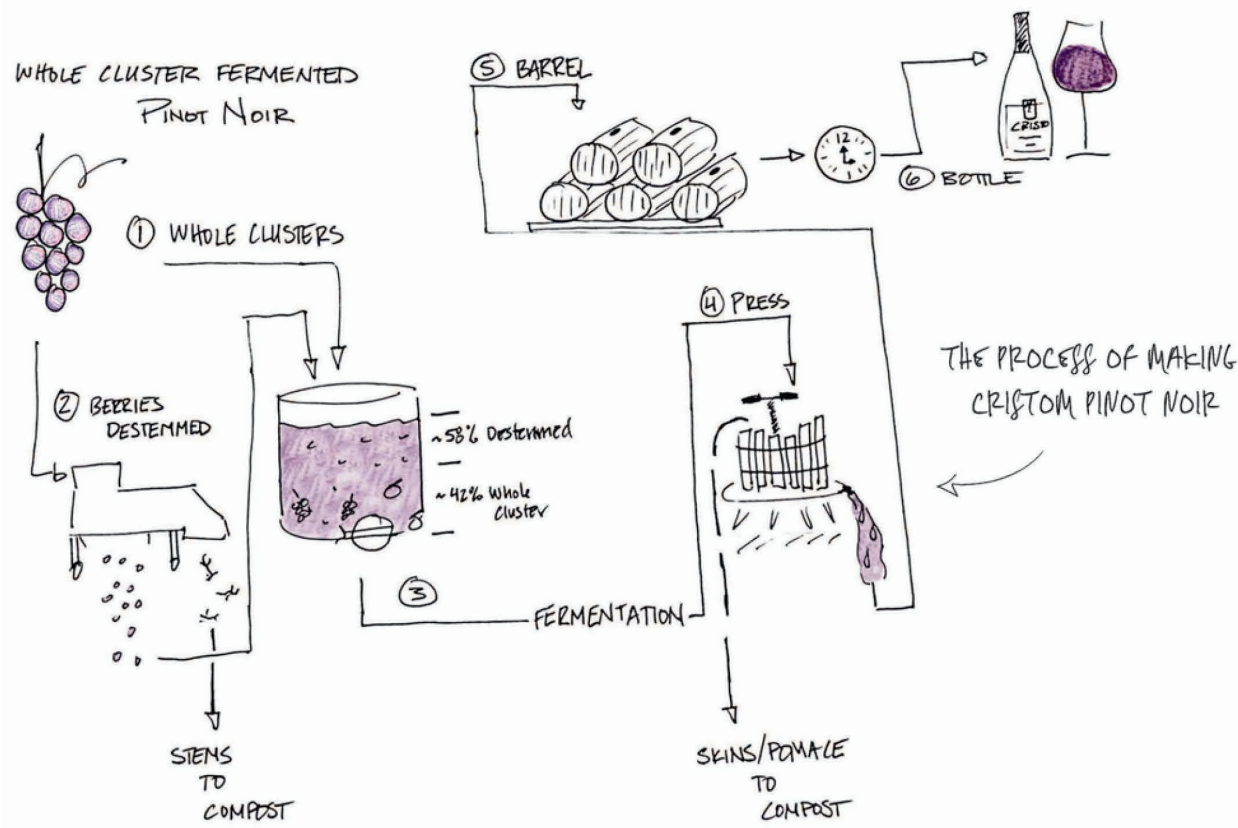 WHOLE CLUSTER FERMENTED
PINOT NOIR
1 WHOLE CLUSTERS
2 BERRIES
DESTEMMED
~58% Destemmed
~42% Whole
Cluster
3
FERMENTATION
STEMS
TO
COMPOST
4 PRESS
SKINS/POMACE
TO
COMPOST
5 BARREL
12
6 BOTTLE
THE PROCESS OF MAKING
CRISTOM PINOT NOIR